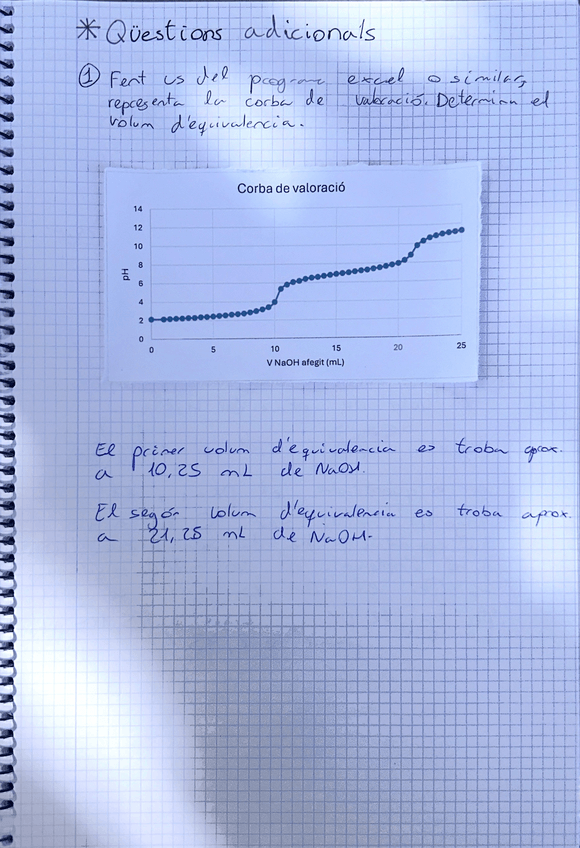 * Qüestions adicionals
① Fent us del programa excel o similar,
representa la corba de valoració. Determina el
volum d'equivalencia.
Corba de valoració
14
12
10
8
6
4
2
0
pH
0 5 10 15 20 25
V NaOH afegit (mL)
El primer volum d'equivalencia es troba aprox.
a 10,25 mL de NaOH.
El segón volum d'equivalencia es troba aprox.
a 21,25 mL de NaOH.